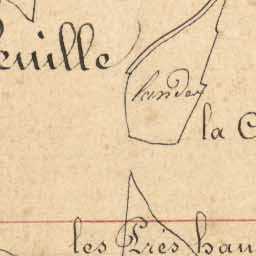 euille
landes
la C
les Près hau